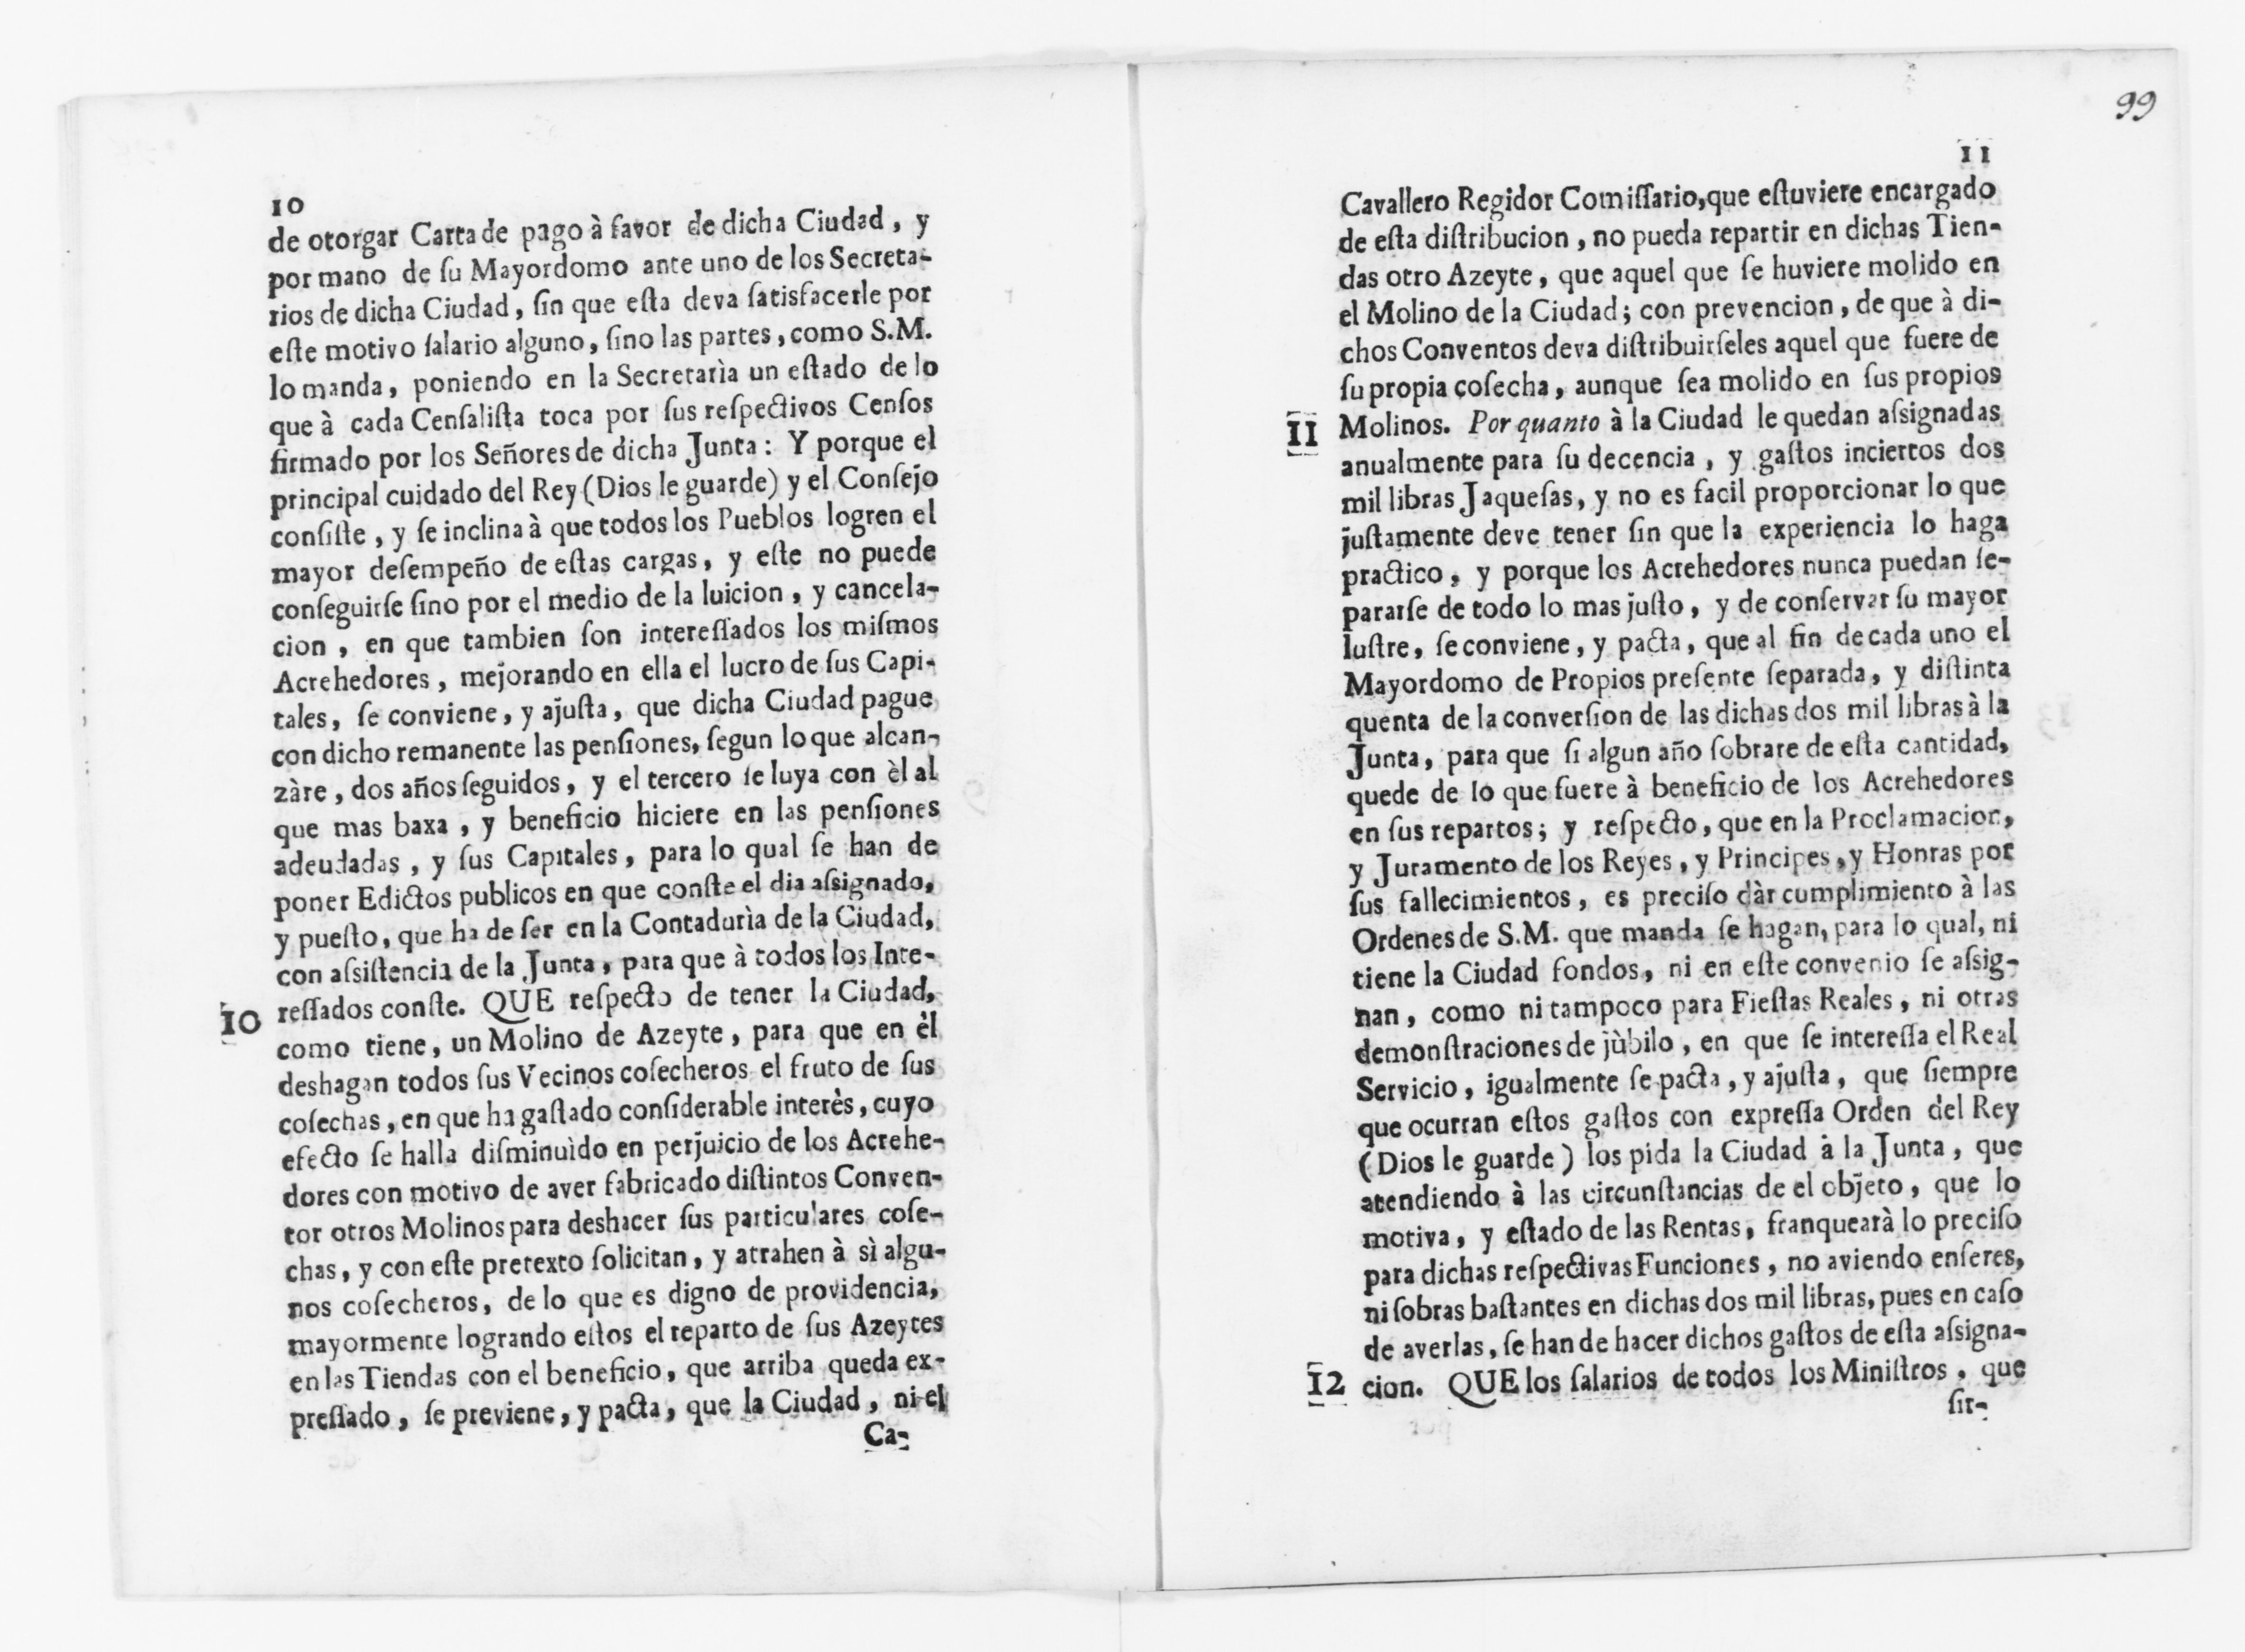 10
de otorgar Carta de pago à favor de dicha Ciudad, y
por mano de ſu Mayordomo ante uno de los Secreta-
rios de dicha Ciudad, ſin que eſta deva ſatisfacerle por
eſte motivo ſalario alguno, ſino las partes, como S.M.
lo manda, poniendo en la Secretarìa un eſtado de lo
que à cada Cenſaliſta toca por ſus reſpectivos Cenſos
firmado por los Señores de dicha Junta: Y porque el
principal cuidado del Rey (Dios le guarde) y el Conſejo
conſiſte, y ſe inclina à que todos los Pueblos logren el
mayor deſempeño de eſtas cargas, y eſte no puede
conſeguirſe ſino por el medio de la luicion, y cancela-
cion, en que tambien ſon intereſſados los miſmos
Acrehedores, mejorando en ella el lucro de ſus Capi-
tales, ſe conviene, y ajuſta, que dicha Ciudad pague
con dicho remanente las penſiones, ſegun lo que alcan-
zàre, dos años ſeguidos, y el tercero ſe luya con èl al
que mas baxa, y beneficio hiciere en las penſiones
adeudadas, y ſus Capitales, para lo qual ſe han de
poner Edictos publicos en que conſte el dia aſsignado,
y pueſto, que ha de ſer en la Contadurìa de la Ciudad,
con aſsiſtencia de la Junta, para que à todos los Inte-
10 reſſados conſte. QUE reſpecto de tener la Ciudad,
como tiene, un Molino de Azeyte, para que en èl
deshagan todos ſus Vecinos coſecheros el fruto de ſus
coſechas, en que ha gaſtado conſiderable interès, cuyo
efecto ſe halla diſminuìdo en perjuicio de los Acrehe-
dores con motivo de aver fabricado diſtintos Conven-
tor otros Molinos para deshacer ſus particulares coſe-
chas, y con eſte pretexto ſolicitan, y atrahen à sì algu-
nos coſecheros, de lo que es digno de providencia,
mayormente logrando eſtos el reparto de ſus Azeytes
en las Tiendas con el beneficio, que arriba queda ex-
preſſado, ſe previene, y pacta, que la Ciudad, ni el
Ca-
99
11
Cavallero Regidor Comiſſario, que eſtuviere encargado
de eſta diſtribucion, no pueda repartir en dichas Tien-
das otro Azeyte, que aquel que ſe huviere molido en
el Molino de la Ciudad; con prevencion, de que à di-
chos Conventos deva diſtribuirſeles aquel que fuere de
ſu propia coſecha, aunque ſea molido en ſus propios
11 Molinos. Por quanto à la Ciudad le quedan aſsignadas
anualmente para ſu decencia, y gaſtos inciertos dos
mil libras Jaqueſas, y no es facil proporcionar lo que
juſtamente deve tener ſin que la experiencia lo haga
practico, y porque los Acrehedores nunca puedan ſe-
pararſe de todo lo mas juſto, y de conſervar ſu mayor
luſtre, ſe conviene, y pacta, que al fin de cada uno el
Mayordomo de Propios preſente ſeparada, y diſtinta
quenta de la converſion de las dichas dos mil libras à la
Junta, para que ſi algun año ſobrare de eſta cantidad,
quede de lo que fuere à beneficio de los Acrehedores
en ſus repartos; y reſpecto, que en la Proclamacion,
y Juramento de los Reyes, y Principes, y Honras por
ſus fallecimientos, es preciſo dàr cumplimiento à las
Ordenes de S.M. que manda ſe hagan, para lo qual, ni
tiene la Ciudad fondos, ni en eſte convenio ſe aſsig-
nan, como ni tampoco para Fieſtas Reales, ni otras
demonſtraciones de jùbilo, en que ſe intereſſa el Real
Servicio, igualmente ſe pacta, y ajuſta, que ſiempre
que ocurran eſtos gaſtos con expreſſa Orden del Rey
(Dios le guarde) los pida la Ciudad à la Junta, que
atendiendo à las circunſtancias de el objeto, que lo
motiva, y eſtado de las Rentas, franquearà lo preciſo
para dichas reſpectivas Funciones, no aviendo enſeres,
ni ſobras baſtantes en dichas dos mil libras, pues en caſo
de averlas, ſe han de hacer dichos gaſtos de eſta aſsigna-
12 cion. QUE los ſalarios de todos los Miniſtros, que
ſir-